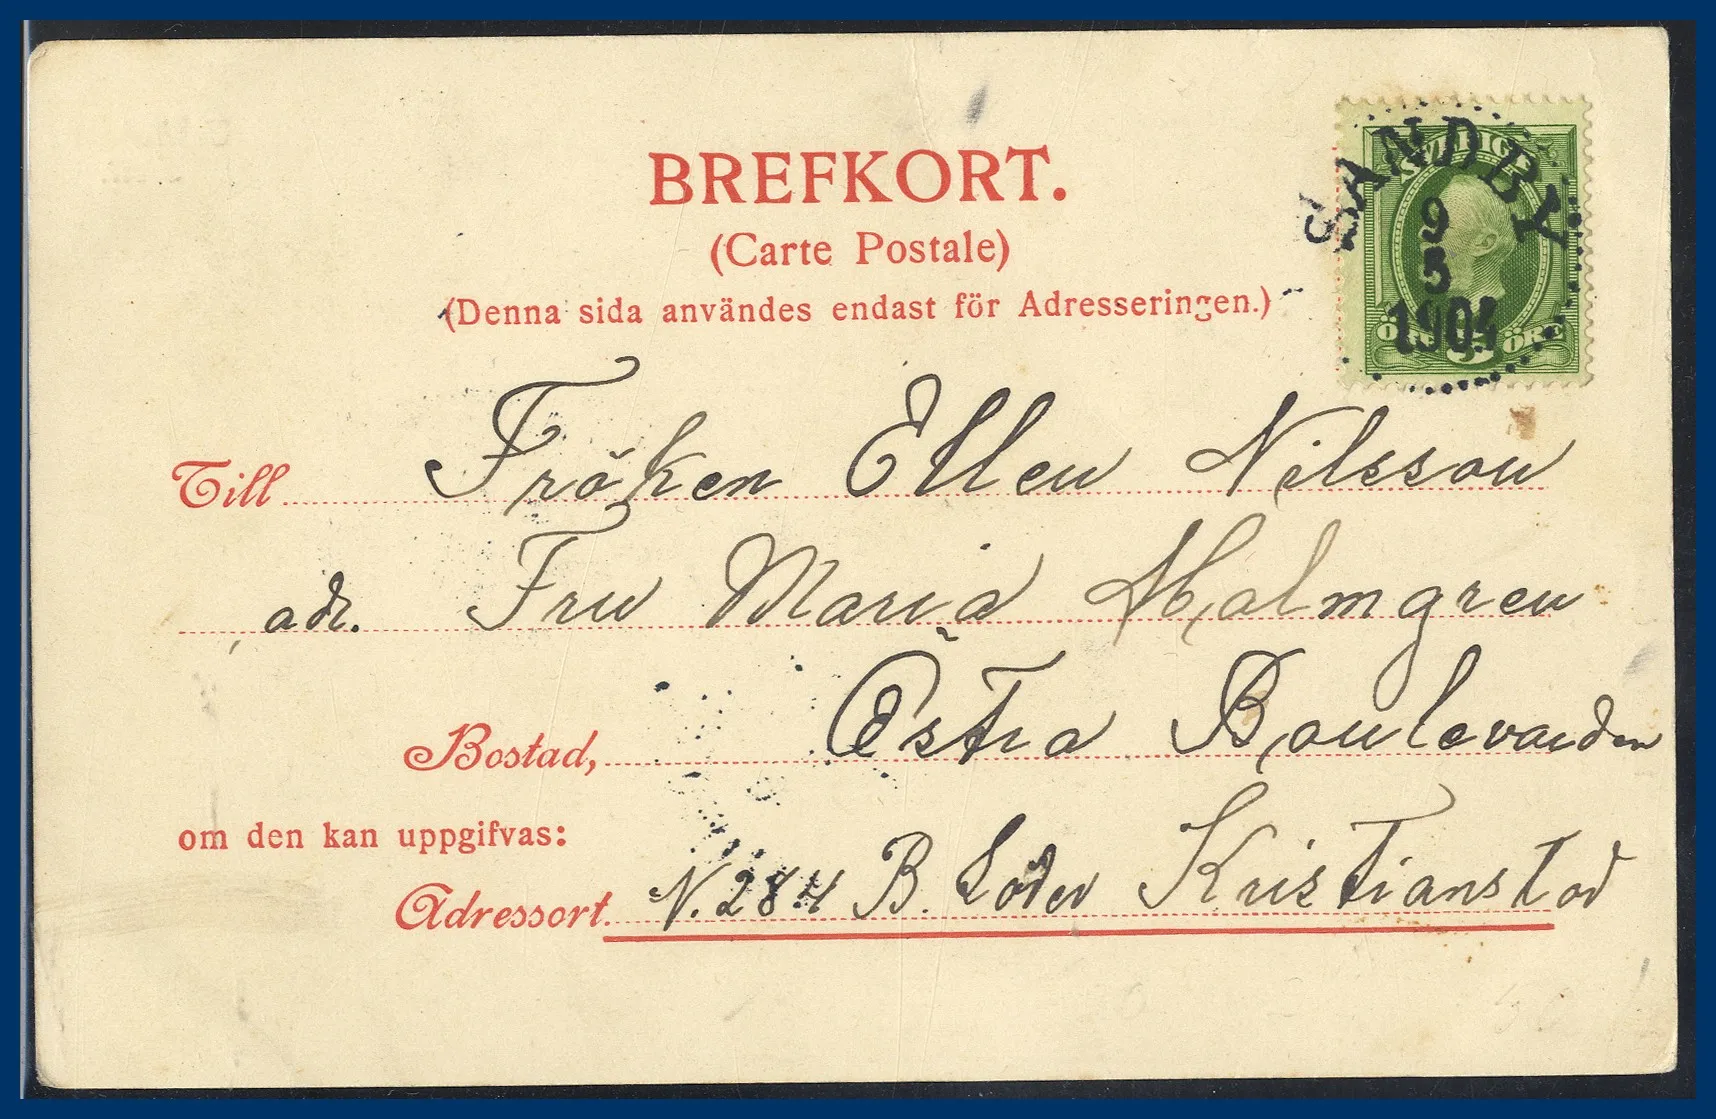 BREFKORT.
(Carte Postale)
(Denna sida användes endast för Adresseringen.)
SVERIGE
SANDBY
9
5
1904
ÖRE 5 ÖRE
Till Fröken Ellen Nilsson
adr. Fru Maria Malmgren
Bostad, Östra Boulevarden
om den kan uppgifvas:
Adressort. N. 284 B. Söder Kristianstad